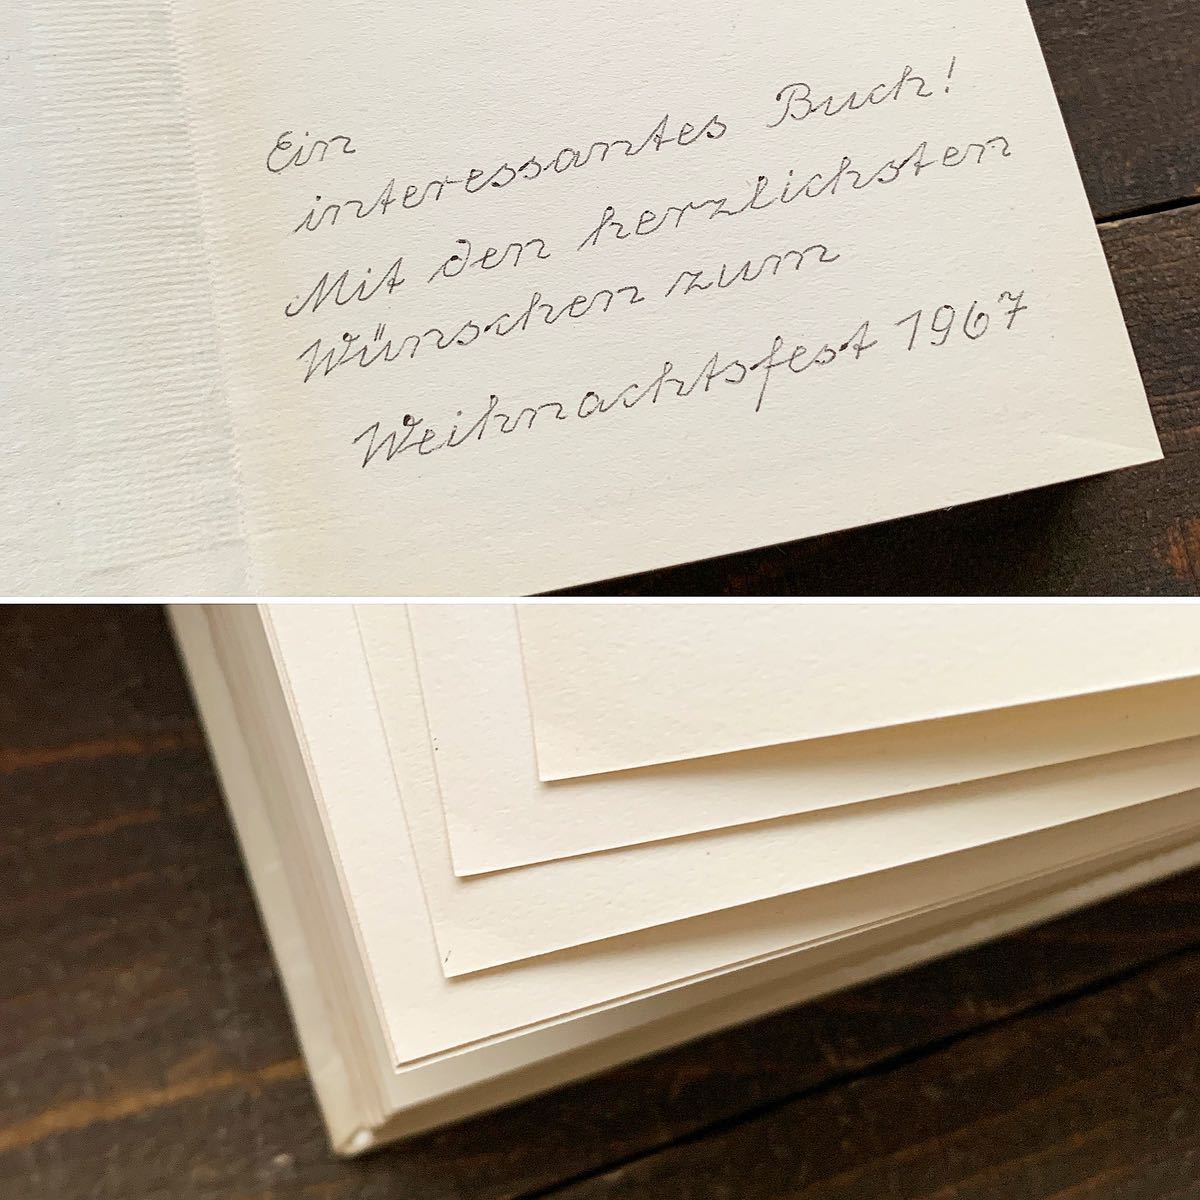 Ein
interessantes Buch!
Mit den herzlichsten
Wünschen zum
Weihnachtsfest 1967